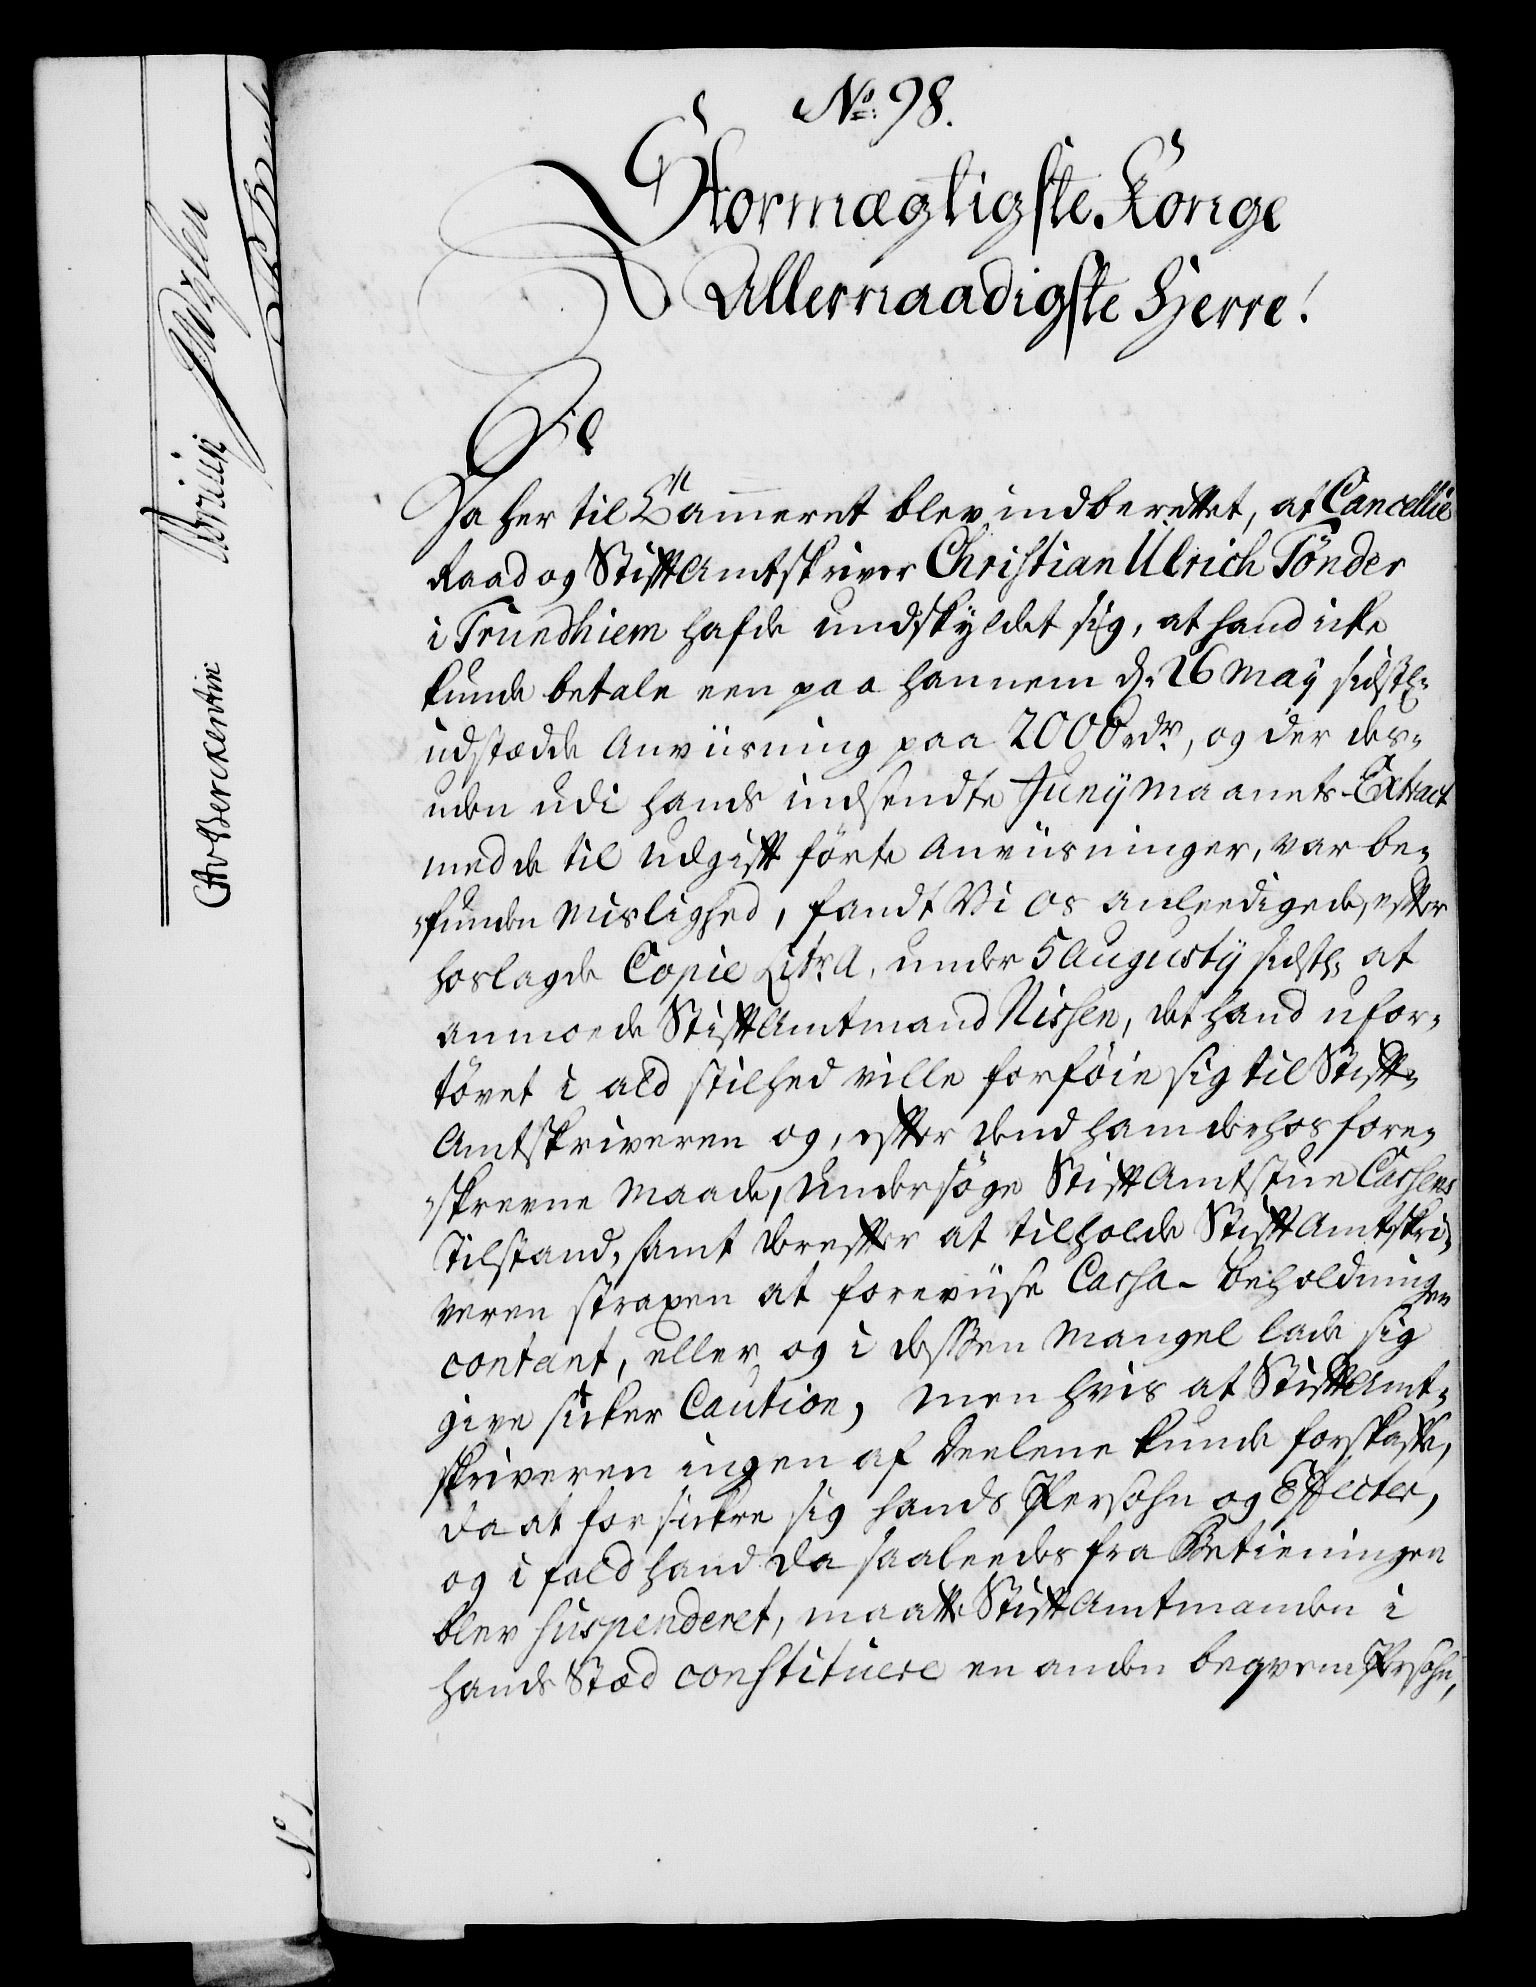 No: 98.
Stormægtigste Konge
Allernaadigste Herre!
Da her til Cammeret blev indberettet, at Cancellie
Raad og StiftAmtskriver Christian Ulrich Tönder
i Trundhiem hafde undskyldet sig, at hand icke
kunde betale een paa hannem d. 26 Maij sidstl:
udstædde Anviisning paa 2000 rdr, og der des-
uden udi hands indsendte Junij Maanets Extract
med de til Udgift förte Anviisninger, var be-
funden Mislighed, fandt Vi os anleedigede, efter
hoslagde Copie Litr. A, under 5 Augusty sidstl: at
anmode StiftAmtmand Nissen, det hand ufor-
tövet i ald stilhed ville forföie sig til Stift-
Amtskriveren og, efter dend ham derhos fore-
skrevne Maade, Undersöge StiftAmtstue Cassens
Tilstand, samt derefter at tilholde StiftAmtskri-
veren straxen at foreviise Cassa-Beholdningen
contant, eller og i dessen Mangel lade sig
give sicker Caution, Men hvis at StiftAmt-
skriveren ingen af Deelene kunde forskaffe,
da at forsickre sig hands Persohn og Effecter,
og i fald hand da saaleedes fra Betieningen
blev suspenderet, maatte StiftAmtmanden i
hands Stæd constituere en anden beqvem Persohn,
CAvBerckentin